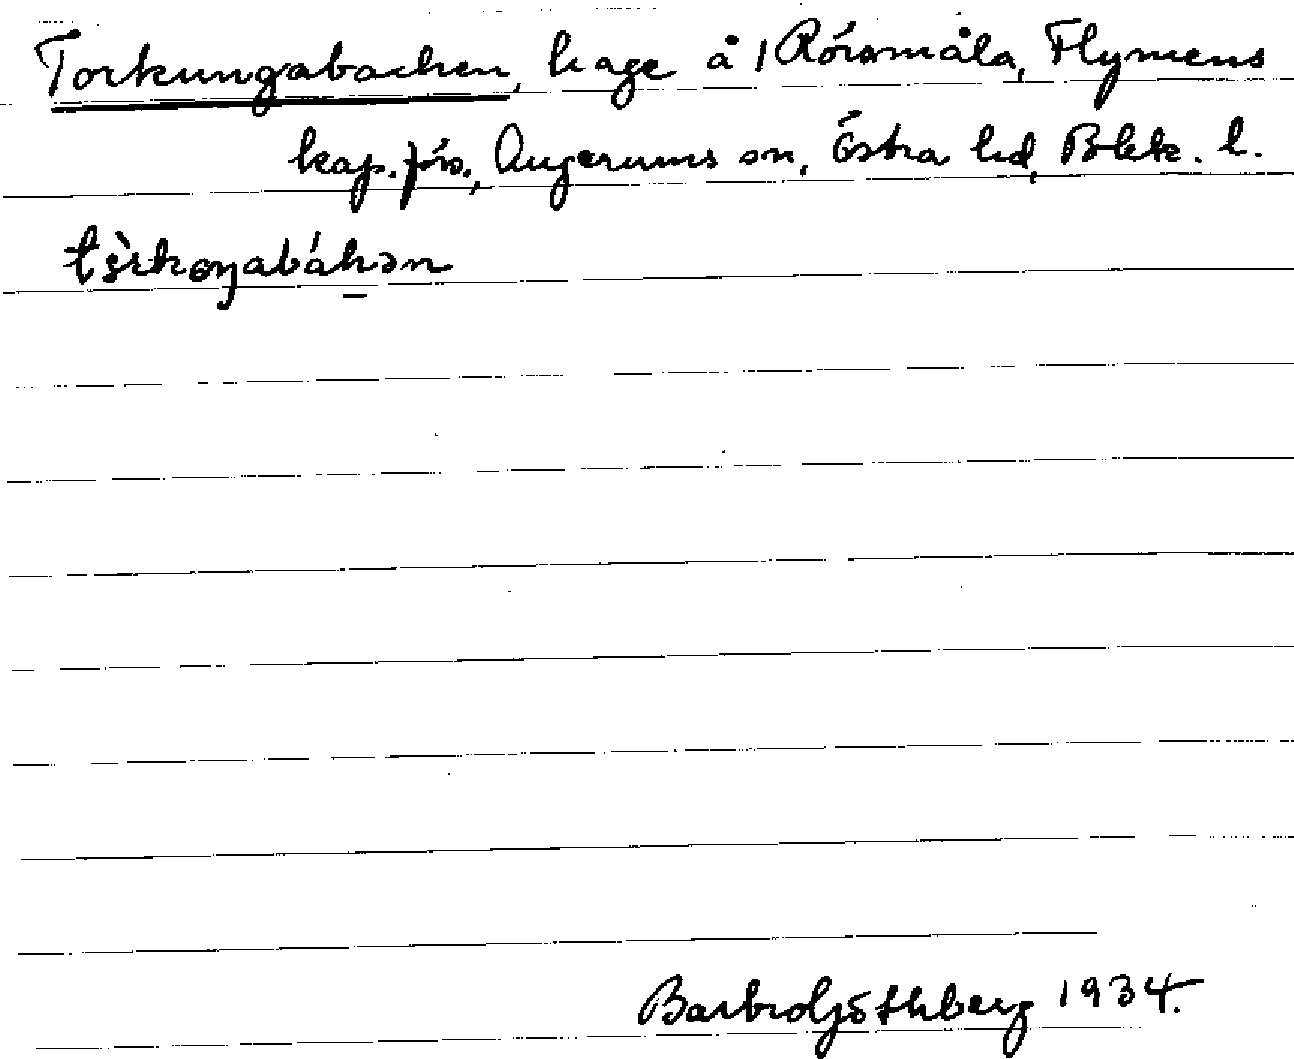 Torkungabacken, hage å 1 Rörsmåla, Flymens
kap.förs., Augerums sn, Östra hd, Blek. l.
Barbro Göthberg 1934.